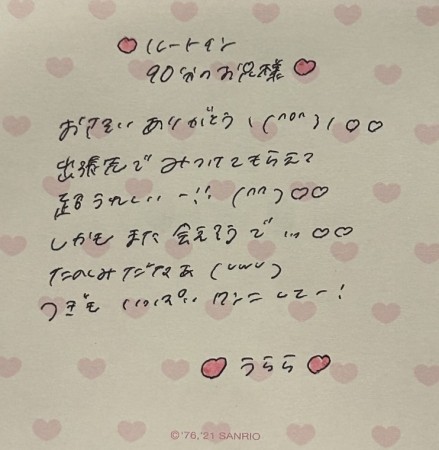 ルートイン
90分のお兄様
おさそい ありがとう!(^o^)! ♡♡
出張先で みつけてもらえて
超うれしいー!! (^^) ♡♡
しかも また 会えそうで… ♡♡
たのしみだなぁ (uwu)
つぎも いっぱい ワンニしてー!
♡ うらら ♡
© '76,'21 SANRIO